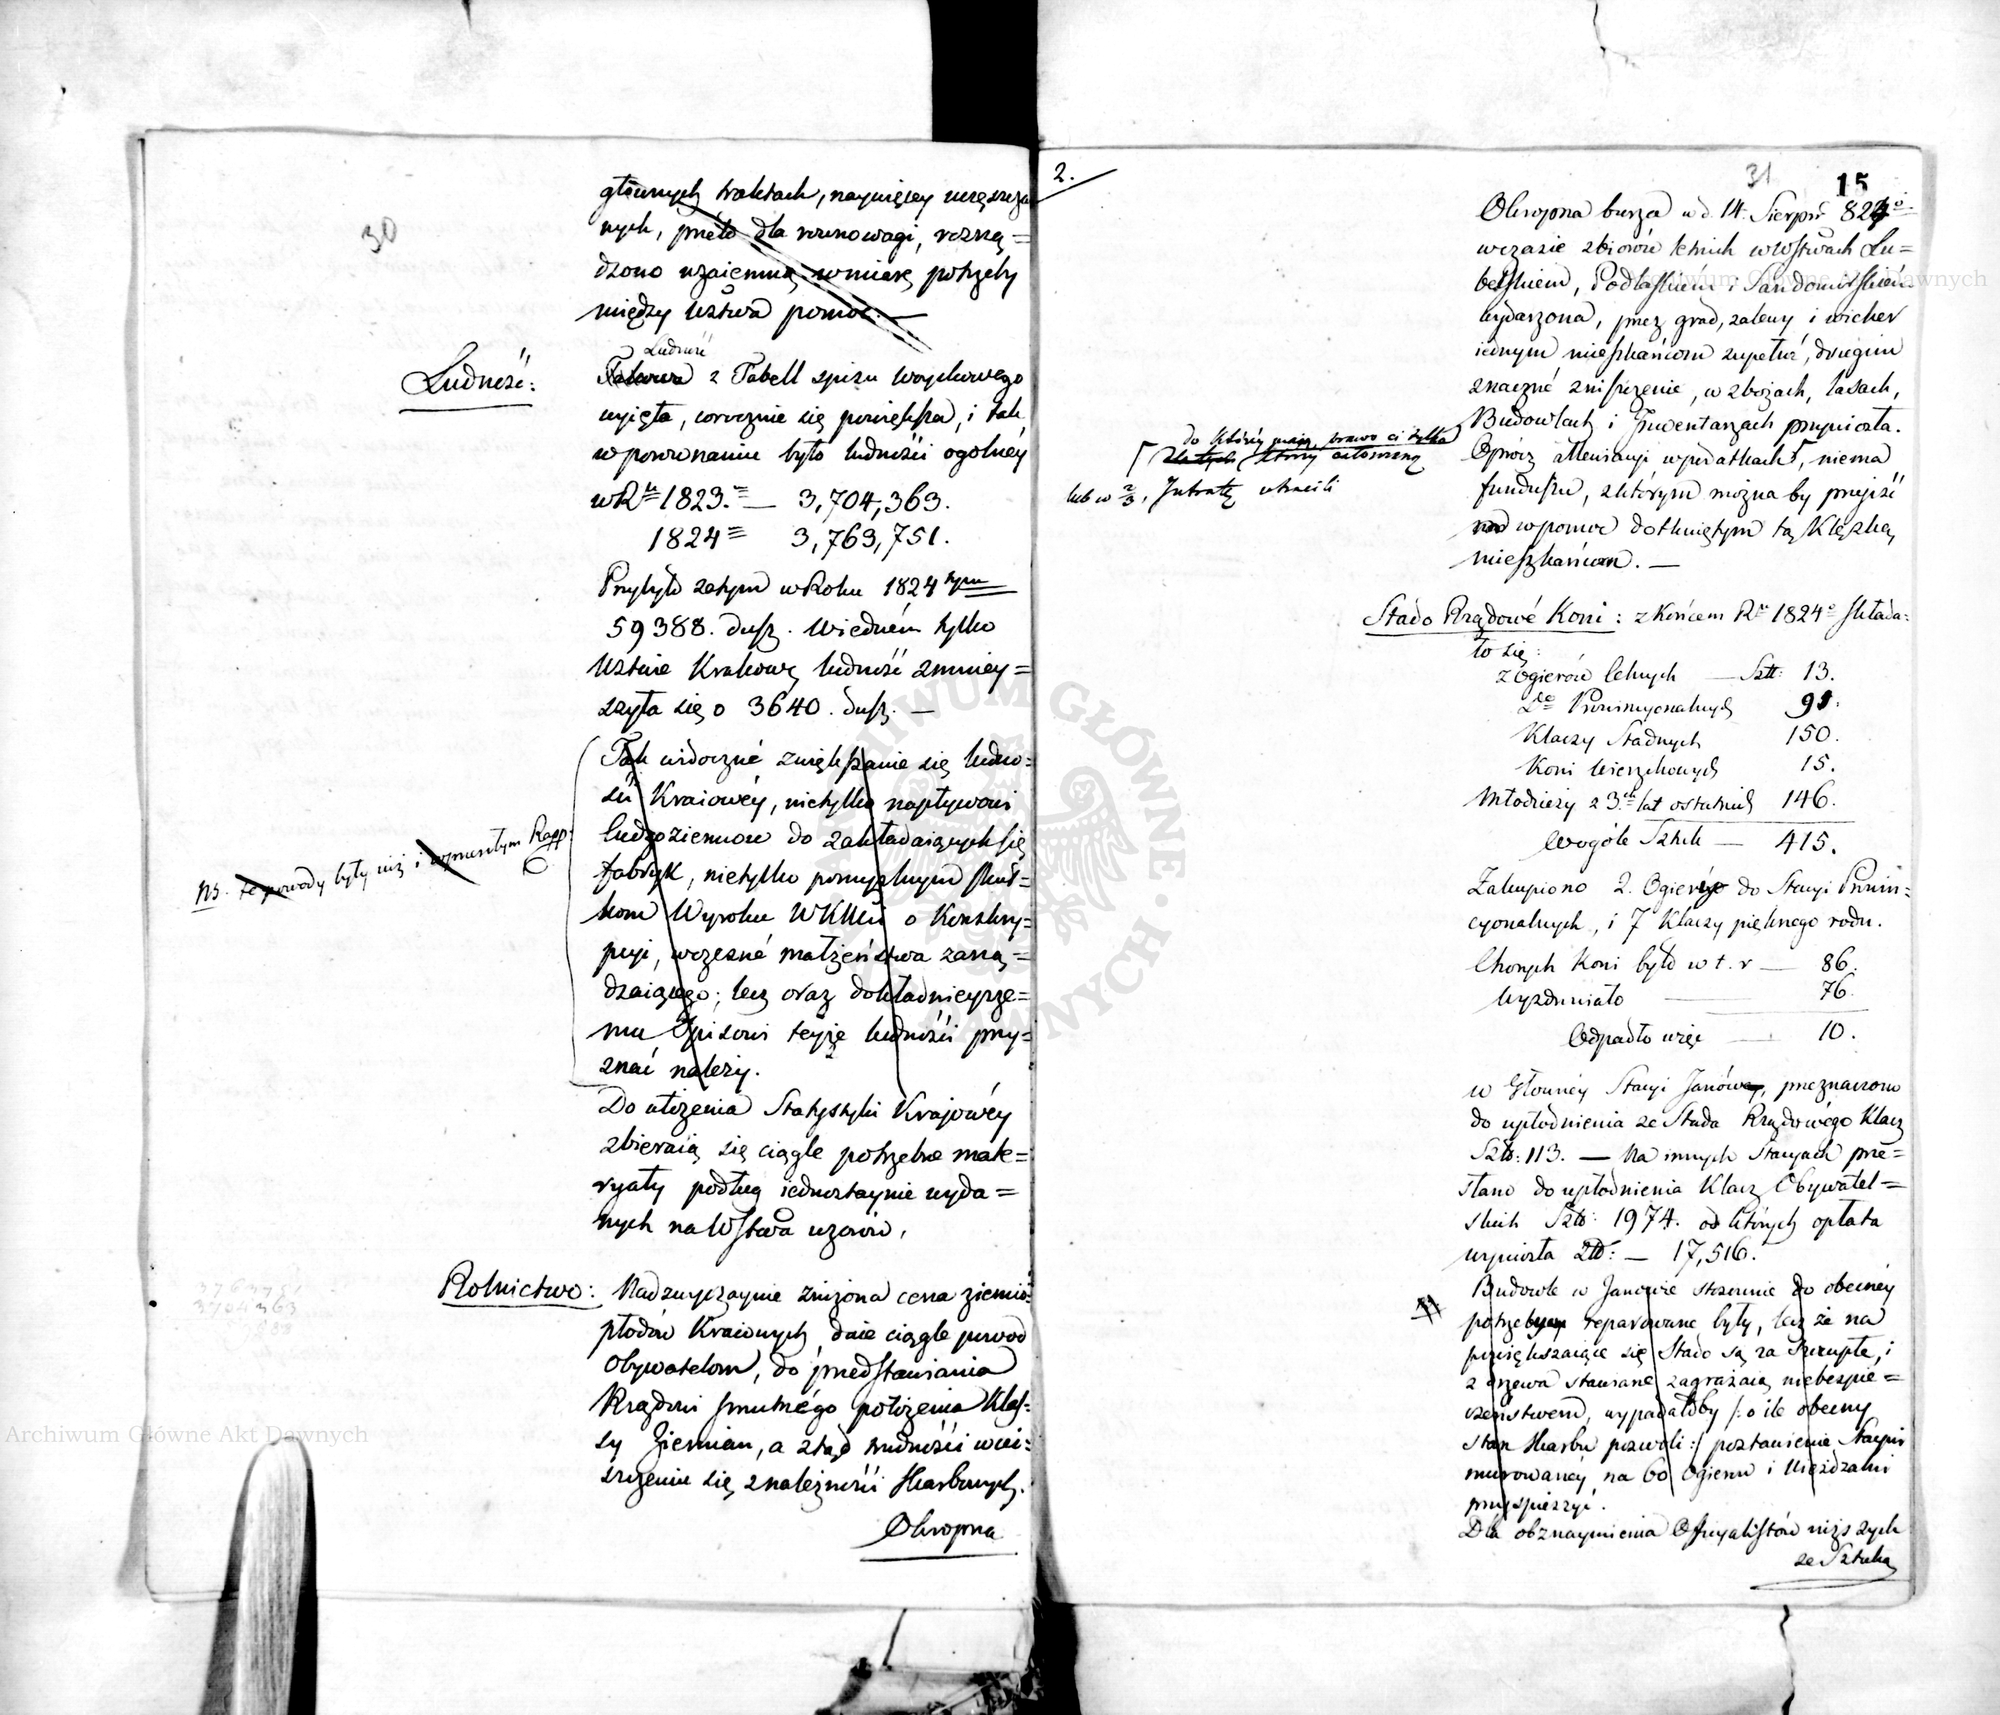 30
głównych traktach, naywięcey uczęszcza
nych, przeto dla równowagi, rozrzą=
dzono wzaiemną wmiarę potrzeby
między Wztwa pomoc. —
Ludność:
Ludność
z Tabell spisu woyskowego
wyięta, corocznie się powiększa, i tak
w porównaniu było ludności ogólnéy
w Ru 1823. — 3,704,363.
1824 3,763,751.
Przybyło zatym w Roku 1824tym
59388. dusz. W iedném tylko
Wztwie Krakows. ludność zmniey=
szyła się o 3640. dusz. —
Tak widoczné zwiększanie się ludno=
ści Kraiowéy, nietylko napływowi
ludzoziemców do zakładaiących się
fabryk, nietylko pomyślnym skut=
kom Wyroku WKMci o Konskry=
pcyi, wczesné małżeństwa zarzą=
dzaiącego; lecz oraz dokładnieysze=
mu Spisowi teyże ludności przy=
znać należy.
NB. te powody były iuż i w przeszłym Rapp:
Do ułożenia Statystyki Krajowéy
zbieraią się ciągle potrzebne mate=
ryały podług iednostaynie wyda=
nych na Wztwa wzorów.
3763751
3704363
Rolnictwo: Nadzwyczaynie zniżona cena ziemio=
płodów Kraiowych, daie ciągle powod
Obywatelom, do przedstawiania
Rządowi smutnégo położenia Klas=
sy Ziemian, a ztąd trudności w ui=
szczeniu się z należności skarbowych.
Okropna
2.
31 15
Okropna burza w d. 14. Sierpń 824o
w czasie zbiorów letnich w Wztwach Lu=
belskiem, Podlaskiém i Sandomirskiém
wydarzona, przez grad, zalewy i wicher
iednym mieszkańcom zupełné, drugim
znaczné zniszczenie, w zbożach, lasach,
Budowlach i Inwentarzach przyniosła.
Oprócz allewiacyi w podatkach, niema
funduszu, z którym można by przyjść
w pomoc dotkniętym tą Klęską
mieszkańcom. —
do któréy maią prawo ci tylko
dla tych którzy całoroczną
lub w 2/3, Intratę utracili
Stado Rządowé Koni: z końcem Ru 1824o składa=
ło się:
z Ogierów celnych — Szt: 13.
Do Prowincyonalnych 91.
Klaczy Stadnych 150.
Koni wierzchowych 15.
Młodzieży z 3ch lat ostatnich 146.
Wogóle Sztuk — 415.
Zakupiono 2. Ogiery do Stacyi Prowin=
cyonalnych, i 7 Klaczy pięknego rodu.
Chorych Koni było w t. r — 86.
Wyzdrowiało 76.
Odpadło więc — 10.
w Głównéy Stacyi Janów, przeznaczono
do upłodnienia ze Stada Rządowégo Klacz
Szt: 113. — Na innych Stacyach prze=
słano do upłodnienia Klacz Obywatel=
skich Szt: 1974. od których opłata
wyniosła Złp: — 17,516.
Budowle w Janowie stosownie do obecnéy
potrzeby reparowane były, lecz że na
powiększaiące się Stado są za szczupłe, i
z drzewa stawiane zagrażaią niebezpie=
czeństwem, wypadałoby /: o ile obecny
stan skarbu pozwoli :/ postawienie Stayni
murowanéy na 60 Ogierów i Uieżdzalni
przyspieszyć.
Dla obznaymienia Officyalistów niższych
ze Sztuką
Archiwum Główne Akt Dawnych
Archiwum Główne Akt Dawnych
ARCHIWUM GŁÓWNE AKT DAWNYCH